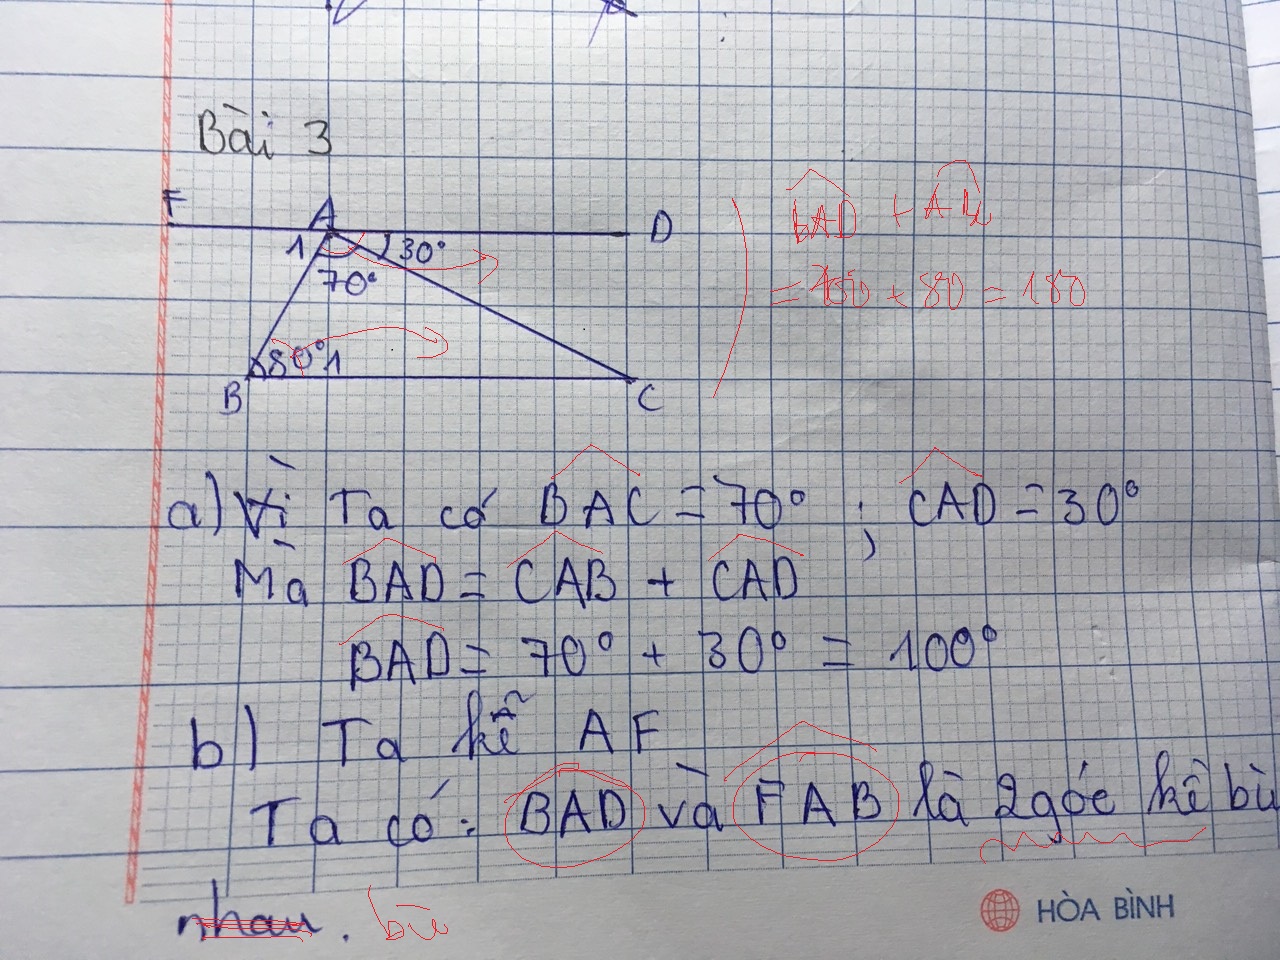 Bài 3
F A D
1 30°
70°
80° 1
B C
BAD +
= 100 + 80 = 180
a) Vì Ta có BAC = 70° ; CAD = 30°
Mà BAD = CAB + CAD
BAD = 70° + 30° = 100°
b) Ta kẽ AF
Ta có: BAD và FAB là 2 góc kề bù
nhau. bù
HÒA BÌNH